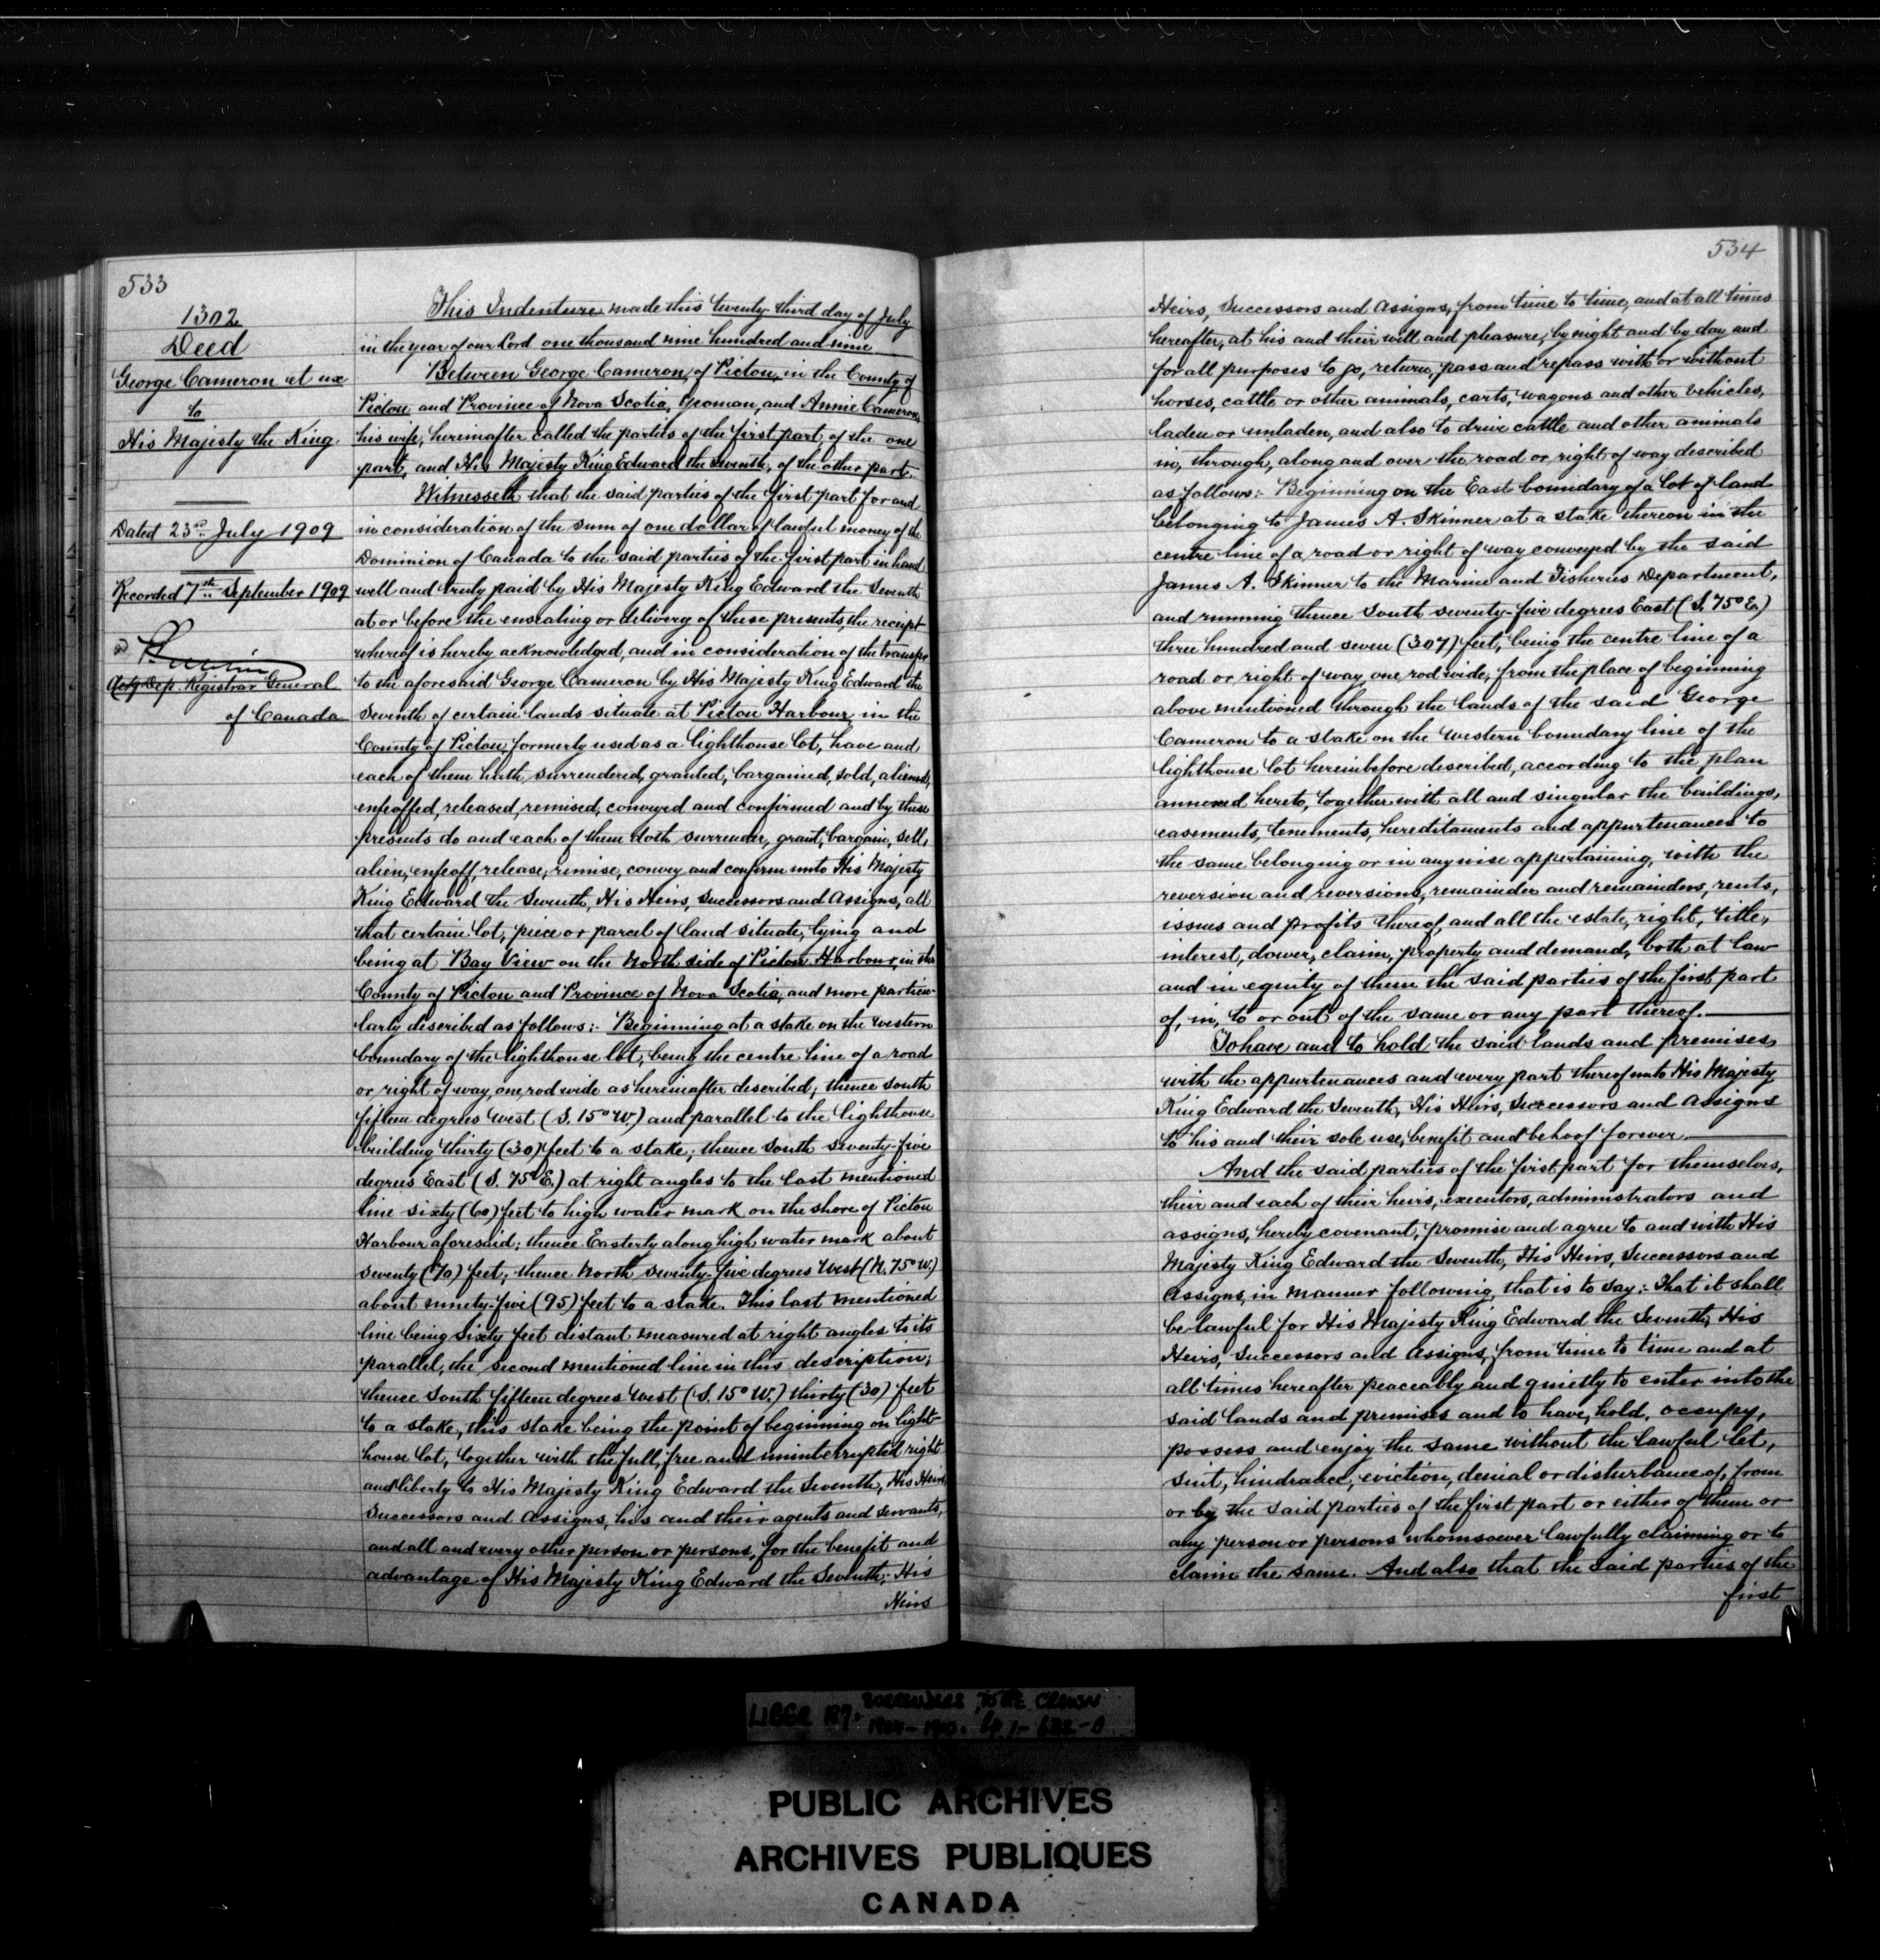 533
1302
Deed
George Cameron et ux
to
His Majesty the King
Dated 23rd July 1909
Recorded 7th September 1909
Actg Dep. Registrar General
of Canada
This Indenture made this twenty third day of July
in the year of our Lord one thousand nine hundred and nine
Between George Cameron, of Pictou, in the County of
Pictou and Province of Nova Scotia, Yeoman, and Annie Cameron
his wife, hereinafter called the parties of the first part, of the one
part, and His Majesty King Edward the Seventh, of the other part.
Witnesseth that the said parties of the first part for and
in consideration of the sum of one dollar of lawful money of the
Dominion of Canada to the said parties of the first part in hand
well and truly paid by His Majesty King Edward the Seventh
at or before the ensealing or delivery of these presents, the receipt
whereof is hereby acknowledged, and in consideration of the transfer
to the aforesaid George Cameron by His Majesty King Edward the
Seventh of certain lands situate at Pictou Harbour, in the
County of Pictou formerly used as a lighthouse lot, have and
each of them hath surrendered, granted, bargained, sold, aliened,
enfeoffed, released, remised, conveyed and confirmed and by these
presents do and each of them doth surrender, grant, bargain, sell,
alien, enfeoff, release, remise, convey and confirm unto His Majesty
King Edward the Seventh, His Heirs, Successors and Assigns, all
that certain lot, piece or parcel of land situate, lying and
being at Bay View on the North side of Pictou Harbour, in the
County of Pictou and Province of Nova Scotia, and more particu-
larly described as follows:- Beginning at a stake on the western
boundary of the lighthouse lot, being the centre line of a road
or right of way, one rod wide as hereinafter described; thence south
fifteen degrees west (S. 15° W.) and parallel to the lighthouse
building thirty (30) feet to a stake; thence South seventy-five
degrees East (S. 75° E.) at right angles to the last mentioned
line sixty (60) feet to high water mark on the shore of Pictou
Harbour aforesaid; thence Easterly along high water mark about
seventy (70) feet; thence North seventy-five degrees West (N. 75° W.)
about ninety-five (95) feet to a stake. This last mentioned
line being sixty feet distant measured at right angles to its
parallel, the second mentioned line in this description;
thence South fifteen degrees west (S. 15° W.) thirty (30) feet
to a stake, this stake being the point of beginning on light-
house lot, together with the full, free and uninterrupted right
and liberty to His Majesty King Edward the Seventh, His Heirs
Successors and Assigns, his and their agents and servants,
and all and every other person or persons, for the benefit and
advantage of His Majesty King Edward the Seventh, His
Heirs
534
Heirs, Successors and Assigns, from time to time, and at all times
hereafter, at his and their will and pleasure, by night and by day and
for all purposes to go, return, pass and repass with or without
horses, cattle or other animals, carts, wagons and other vehicles,
laden or unladen, and also to drive cattle and other animals
in, through, along and over the road or right of way described
as follows:- Beginning on the East boundary of a lot of land
belonging to James A. Skinner at a stake thereon in the
centre line of a road or right of way conveyed by the said
James A. Skinner to the Marine and Fisheries Department,
and running thence South seventy-five degrees East (S. 75° E.)
three hundred and seven (307) feet, being the centre line of a
road or right of way, one rod wide, from the place of beginning
above mentioned through the lands of the said George
Cameron to a stake on the western boundary line of the
lighthouse lot hereinbefore described, according to the plan
annexed hereto, together with all and singular the buildings,
easements, tenements, hereditaments and appurtenances to
the same belonging or in anywise appertaining, with the
reversion and reversions, remainder and remainders, rents,
issues and profits thereof, and all the estate, right, title,
interest, dower, claim, property and demand, both at law
and in equity of them the said parties of the first part
of, in, to or out of the same or any part thereof.
To have and to hold the said lands and premises
with the appurtenances and every part thereof unto His Majesty
King Edward the Seventh, His Heirs, Successors and Assigns
to his and their sole use, benefit and behoof forever.
And the said parties of the first part for themselves,
their and each of their heirs, executors, administrators and
assigns, hereby covenant, promise and agree to and with His
Majesty King Edward the Seventh, His Heirs, Successors and
Assigns, in manner following, that is to say:- That it shall
be lawful for His Majesty King Edward the Seventh, His
Heirs, Successors and Assigns, from time to time and at
all times hereafter peaceably and quietly to enter into the
said lands and premises and to have, hold, occupy,
possess and enjoy the same without the lawful let,
suit, hindrance, eviction, denial or disturbance of, from
or by the said parties of the first part or either of them or
any person or persons whomsoever lawfully claiming or to
claim the same. And also that the said parties of the
first
LIBER 127. SURRENDERS TO THE CROWN
PUBLIC ARCHIVES
ARCHIVES PUBLIQUES
CANADA